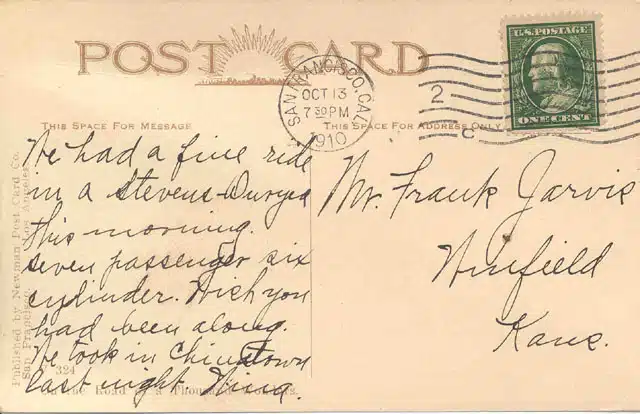 POST CARD
SAN FRANCISCO, CAL.
OCT 13
7 30 PM
1910
2
C
U.S. POSTAGE
ONE CENT
THIS SPACE FOR MESSAGE
THIS SPACE FOR ADDRESS ONLY
We had a fine ride
in a Stevens-Duryea
this morning.
Seven passenger six
cylinder. Wish you
had been along.
We took in Chinatown
last night.
Mr. Frank Jarvis
Winfield
Kans.
Published by Newman Post Card Co.
San Francisco. Los Angeles.
324
On the Road of a Thousand Wonders.